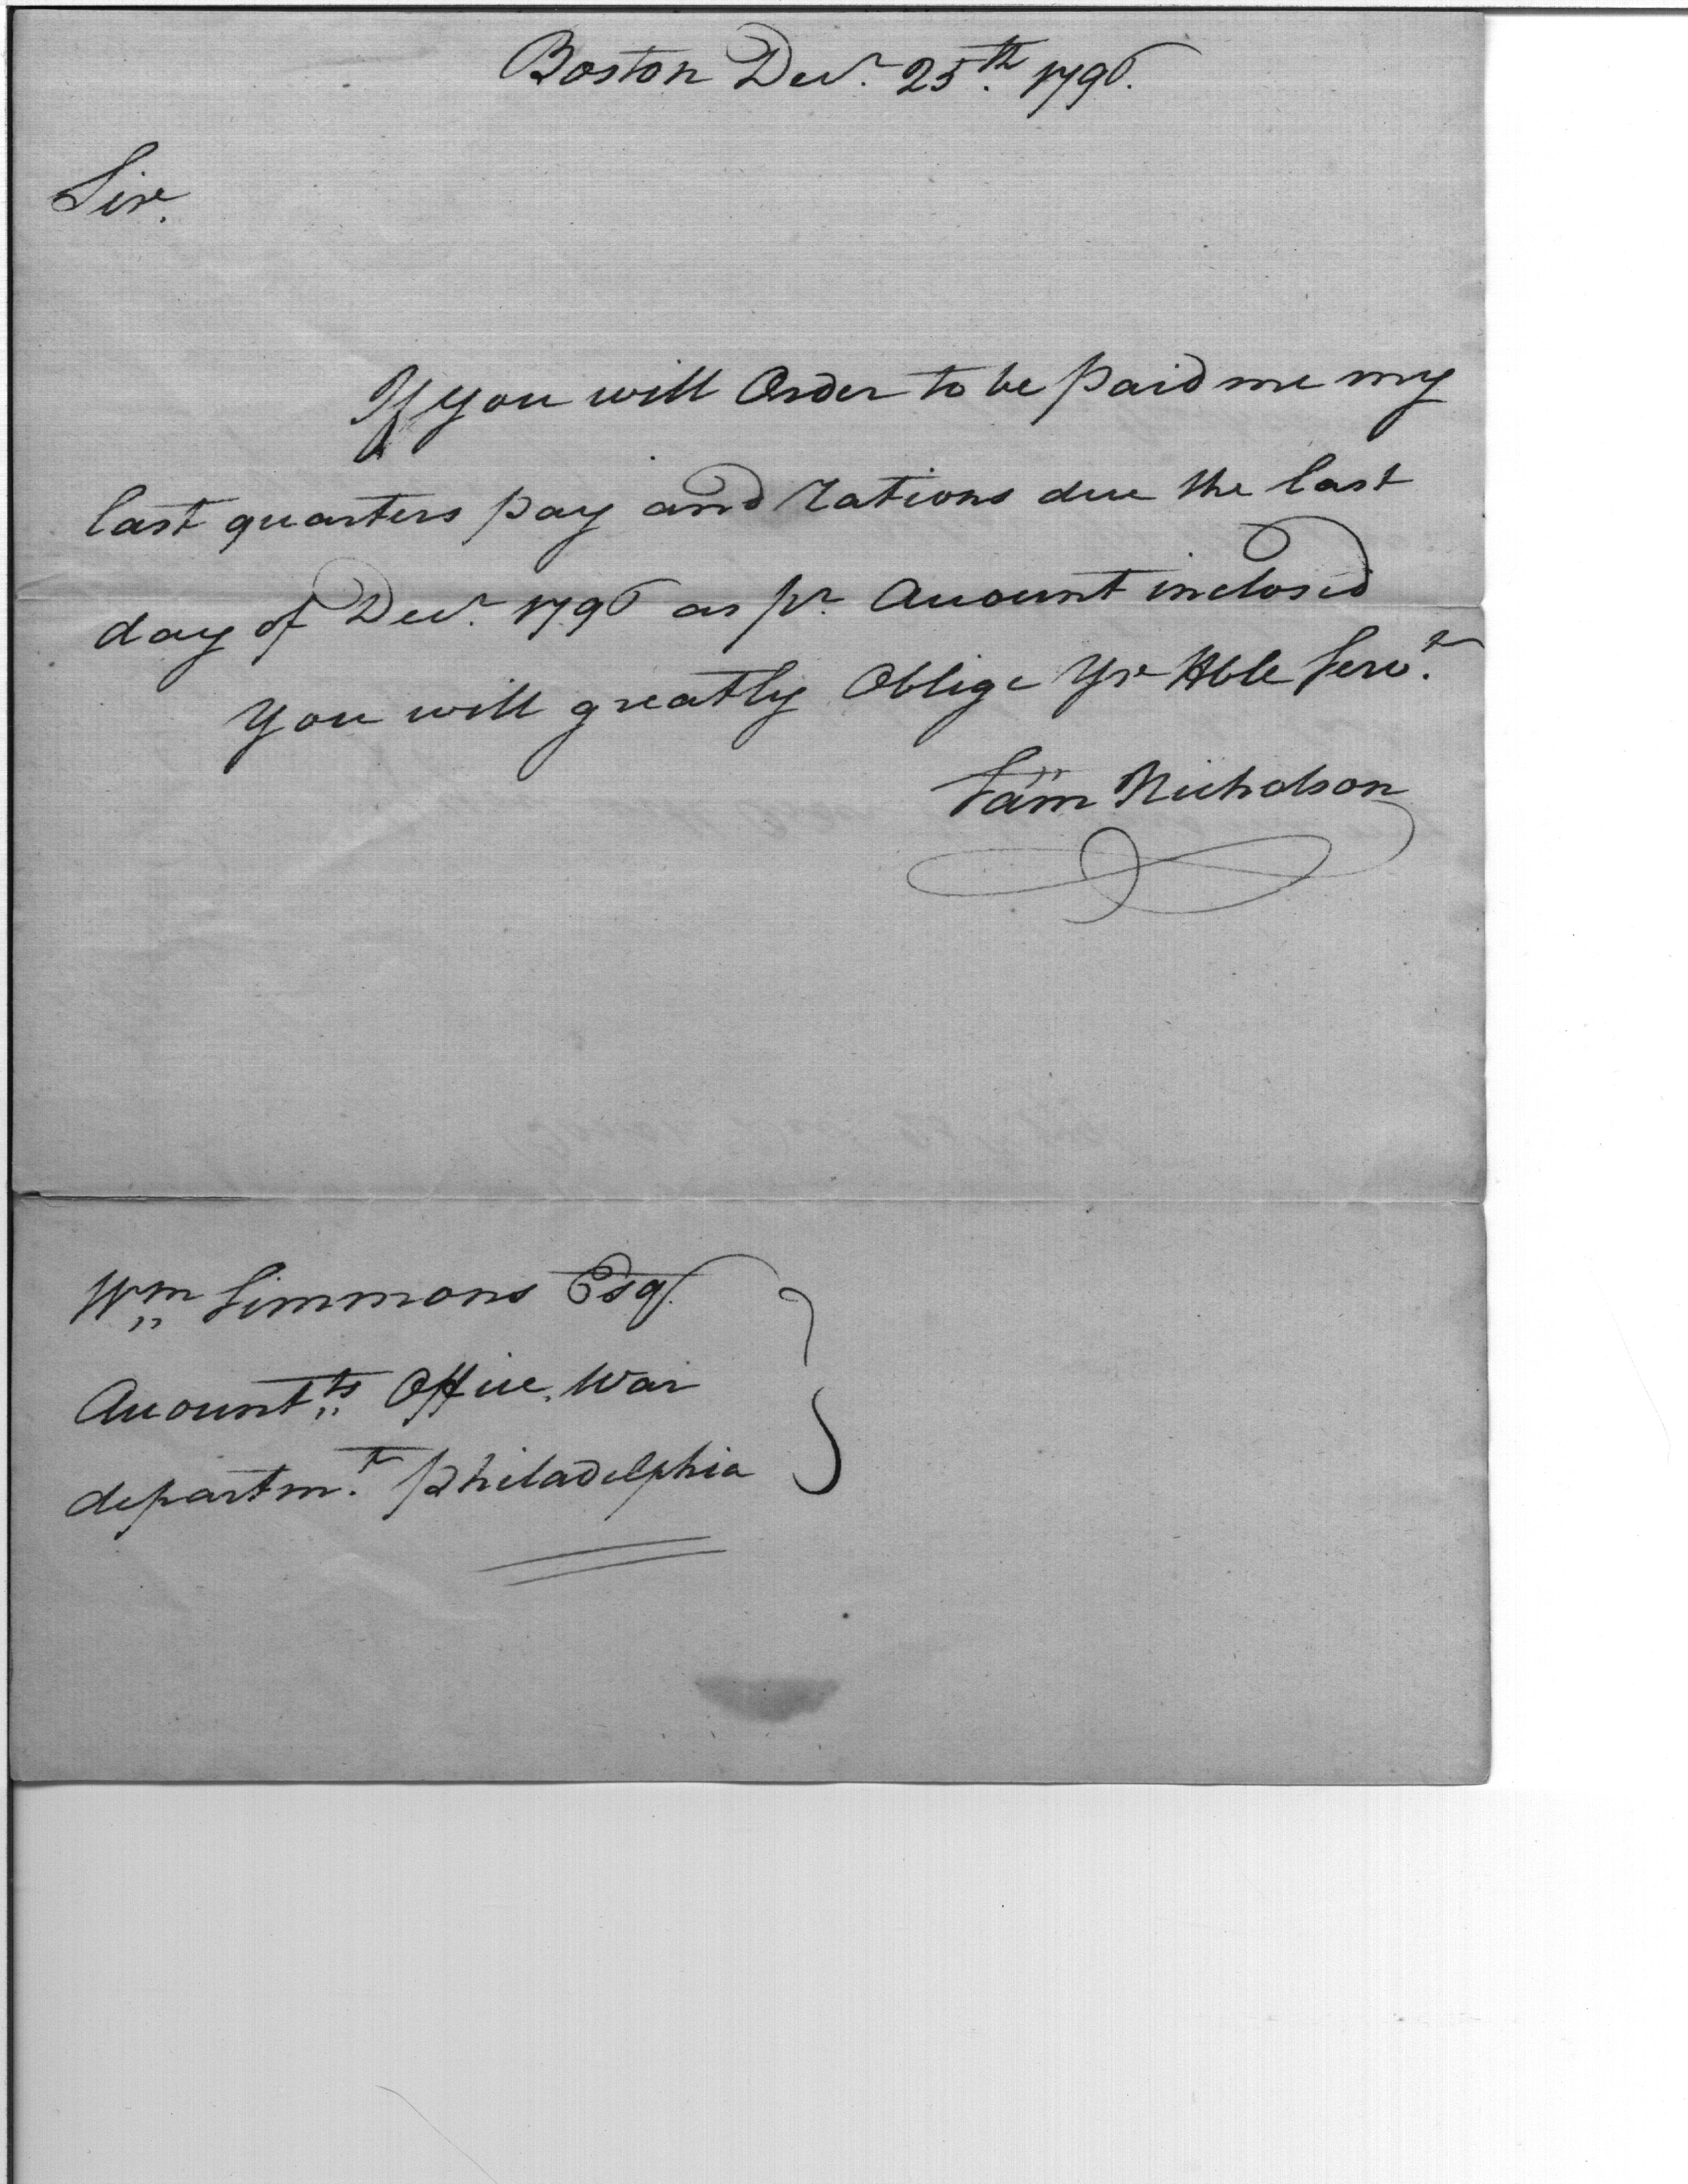 Boston Decr. 25th. 1796.
Sir.
If you will Order to be paid me my
last quarters pay and rations due the last
day of Decr. 1796 as pr. Account inclosed
you will greatly Oblige Yr Hble Servt.
Sam Nicholson
Wm Simmons Esqr.
Accountts Office War
departmt. Philadelphia